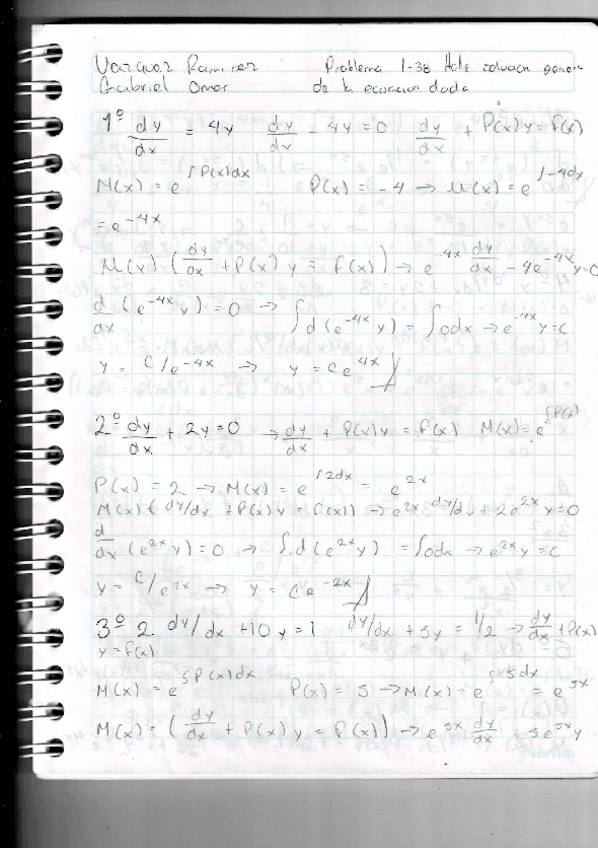 Vazquez Ramirez Problema 1-38 Halle solucion genera
Gabriel Omar de la ecuacion dada
1º dy/dx = 4y dy/dx - 4y = 0 dy/dx + P(x)y = f(x)
M(x) = e^∫P(x)dx P(x) = -4 → M(x) = e^∫-4dx
= e^-4x
M(x) (dy/dx + P(x) y = f(x)) → e^-4x dy/dx - 4e^-4x y = 0
d/dx (e^-4x y) = 0 → ∫d(e^-4x y) = ∫0dx → e^-4x y = c
y = C/e^-4x → y = ce^4x
2º dy/dx + 2y = 0 → dy/dx + P(x)y = f(x) M(x) = e^∫P(x)
P(x) = 2 → M(x) = e^∫2dx = e^2x
M(x) ( dy/dx + P(x) y = f(x)) → e^2x dy/dx + 2e^2x y = 0
d/dx (e^2x y) = 0 → ∫d(e^2x y) = ∫0dx → e^2x y = c
y = C/e^2x → y = Ce^-2x
3º 2 dy/dx + 10y = 1 dy/dx + 5y = 1/2 → dy/dx + P(x)
y = f(x)
M(x) = e^∫P(x)dx P(x) = 5 → M(x) = e^∫5dx = e^5x
M(x) = (dy/dx + P(x) y = f(x)) → e^5x dy/dx + 5e^5x y